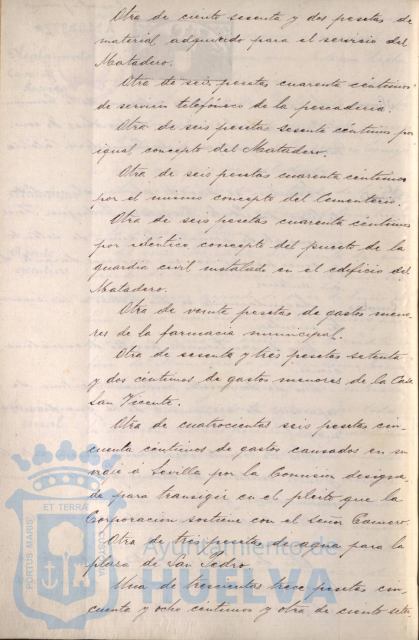 Otra de ciento sesenta y dos pesetas de
material adquirido para el servicio del
Matadero.
Otra de seis pesetas cuarenta céntimos
de servicio telefónico de la pescadería.
Otra de seis pesetas sesenta céntimos por
igual concepto del Matadero.
Otra de seis pesetas cuarenta céntimos
por el mismo concepto del Cementerio.
Otra de seis pesetas cuarenta céntimos
por idéntico concepto del puesto de la
guardia civil instalado en el edificio del
Matadero.
Otra de veinte pesetas de gastos meno-
res de la farmacia municipal.
Otra de sesenta y tres pesetas setenta
y dos céntimos de gastos menores de la Casa
San Vicente.
Otra de cuatrocientas seis pesetas cin-
cuenta céntimos de gastos causados en su
viaje á Sevilla por la Comisión designa-
da para transigir en el pleito que la
Corporación sostiene con el Señor
Otra de tres pesetas de para la
plaza de San Pedro.
Una de trescientas trece pesetas cin-
cuenta y ocho céntimos y otra de ciento
PORTUS MARIS
ET TERRÆ
CUSTODIA
Ayuntamiento de
HUELVA